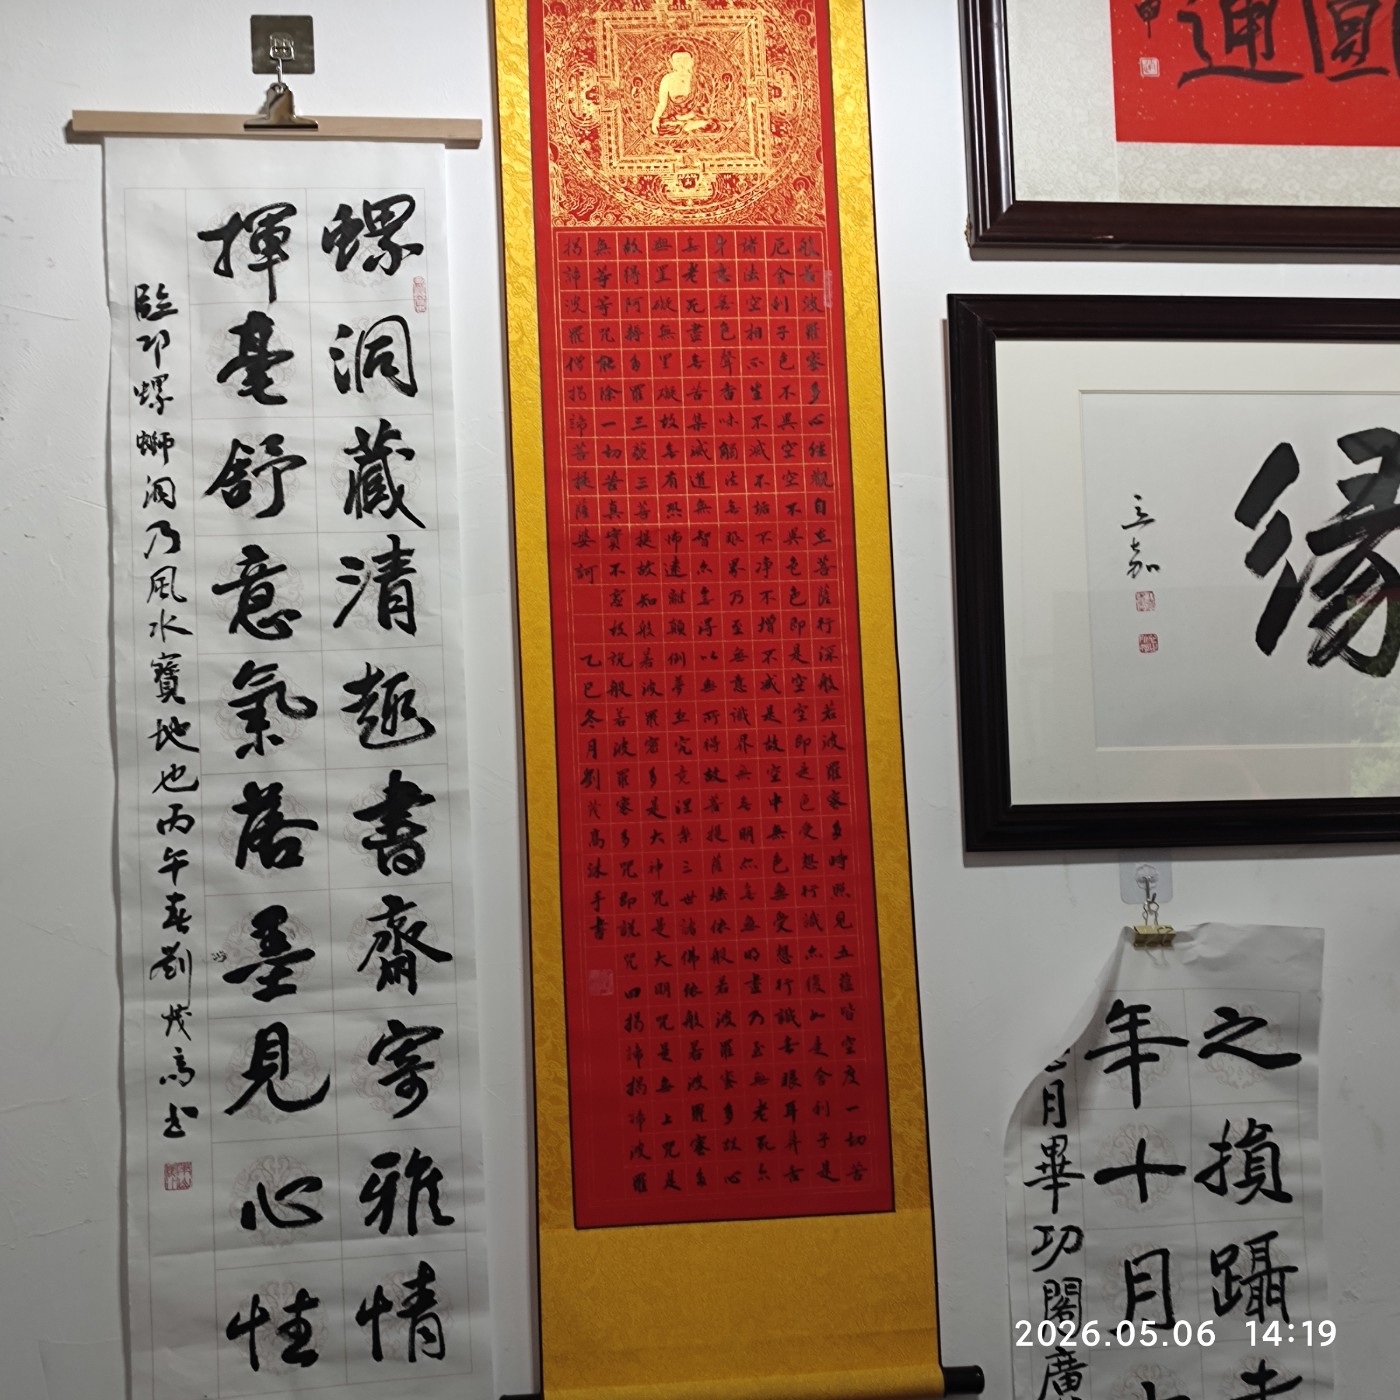 螺洞藏清趣書齋寄雅情
揮毫舒意氣落墨見心性
臨邛螺螄洞乃風水寶地也丙午春劉茂高書
般若波羅蜜多心經觀自在菩薩行深般若波羅蜜多時照見五蘊皆空度一切苦
厄舍利子色不異空空不異色色即是空空即是色受想行識亦復如是舍利子是
諸法空相不生不滅不垢不净不增不减是故空中無色無受想行識無眼耳鼻舌
身意無色聲香味觸法無眼界乃至無意識界無無明亦無無明盡乃至無老死亦
無老死盡無苦集滅道無智亦無得以無所得故菩提薩埵依般若波羅蜜多故心
無罣礙無罣礙故無有恐怖遠離顛倒夢想究竟涅槃三世諸佛依般若波羅蜜多
故得阿耨多羅三藐三菩提故知般若波羅蜜多是大神咒是大明咒是無上咒是
無等等咒能除一切苦真實不虛故說般若波羅蜜多咒即說咒曰揭諦揭諦波羅
揭諦波羅僧揭諦菩提薩婆訶
乙巳冬月劉茂高沐手書
圓通
緣
立嘉
之損躡
年十月
月畢功閣廣
2026.05.06 14:19